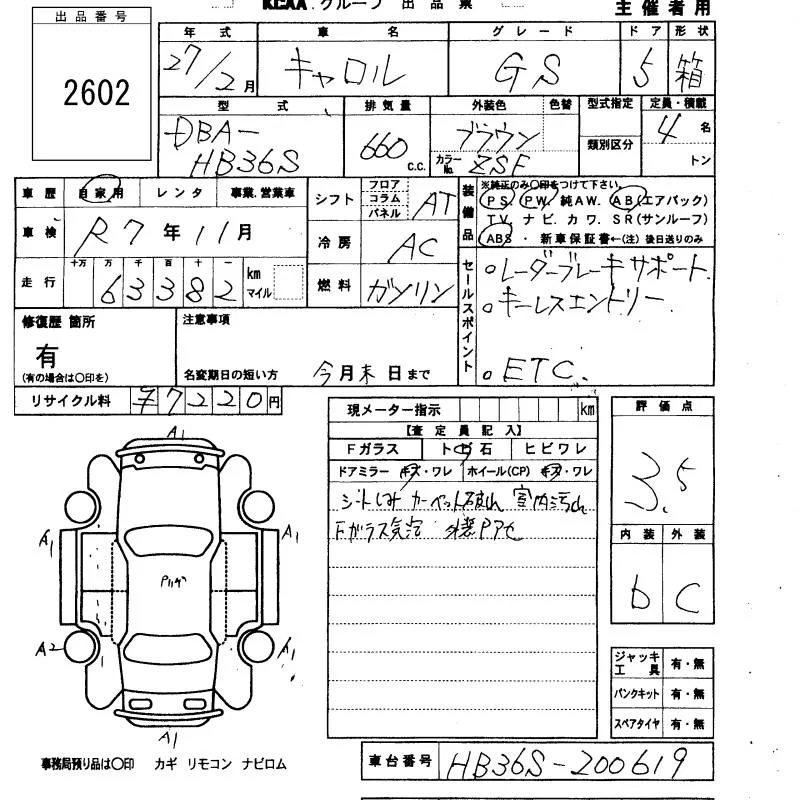 KCAA.グループ 出品票
主催者用
出品番号
2602
年式 車名 グレード ドア 形状
27/2月 キャロル GS 5 箱
型式 排気量 外装色 色替 型式指定 定員・積載
DBA-
HB36S
660 c.c.
ブラウン
カラーNo. ZSF
類別区分
4名
トン
車歴 自家用 レンタ 事業.営業車
車検 R7年11月
走行 十万 万 千 百 十 一
63382 km マイル
シフト フロア コラム パネル AT
冷房 AC
燃料 ガソリン
装備品
※純正のみ〇印をつけて下さい。
PS. PW. 純AW. AB(エアバック)
TV. ナビ. カワ. SR(サンルーフ)
ABS ・ 新車保証書←(注)後日送りのみ
セールスポイント
。レーダーブレーキサポート
。キーレスエントリー
。ETC.
修復歴 箇所
有
(有の場合は〇印を)
注意事項
名変期日の短い方 今月末日まで
リサイクル料 ¥7220円
現メーター指示 km
【査定員記入】
Fガラス トビ石 ヒビワレ
ドアミラー キズ・ワレ ホイール(CP) キズ・ワレ
シートしみ カーペット破れ 室内汚れ
Fガラス気泡 外装Pアセ
評価点
3.5
内装 外装
b C
ジャッキ工具 有・無
パンクキット 有・無
スペアタイヤ 有・無
A1
A1
A1
A2
A1
A1
事務局預り品は〇印 カギ リモコン ナビロム
車台番号 HB36S-200619